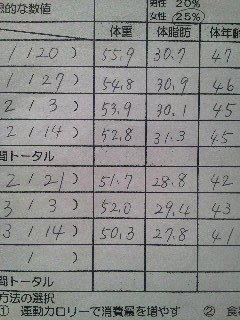 想的な数値
男性 20%
女性 (25%)
体重 体脂肪 体年齢
1 / 20 ) 55.9 30.7 47
1 / 27 ) 54.8 30.9 46
2 / 3 ) 53.9 30.1 45
2 / 14 ) 52.8 31.3 45
間トータル
2 / 21 ) 51.7 28.8 42
3 / 3 ) 52.0 29.4 43
3 / 14 ) 50.3 27.8 41
/ )
間トータル
方法の選択
① 運動カロリーで消費量を増やす ② 食